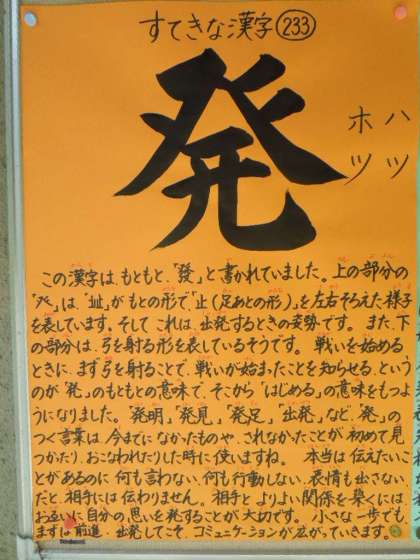 すてきな漢字 233
発
ハツ
ホツ
この漢字は、もともと、「發」と書かれていました。上の部分の
「癶」は、「癶」がもとの形で、「止(足あとの形)」を左右そろえた様子
を表しています。そして これは、出発するときの姿勢です。また、下
の部分は、弓を射る形を表しているそうです。戦いを始める
ときに、まず弓を射ることで、戦いが始まったことを知らせる、という
のが「発」のもともとの意味で、そこから「はじめる」の意味をもつ
ようになりました。「発明」、「発見」、「発足」、「出発」など、「発」の
つく言葉は、今までになかったものや、されなかったことが、初めて見
つかたり、おこなわれたりした時に使いますね。 本当は伝えたいこ
とがあるのに 何も言わない、何も行動しない、表情も出さない
だと、相手には伝わりません。相手と よりよい関係を築くには
お互いに自分の思いを発することが大切です。小さな一歩でも
まずは前進 出発してこそ、コミュニケーションが広がっていきます。